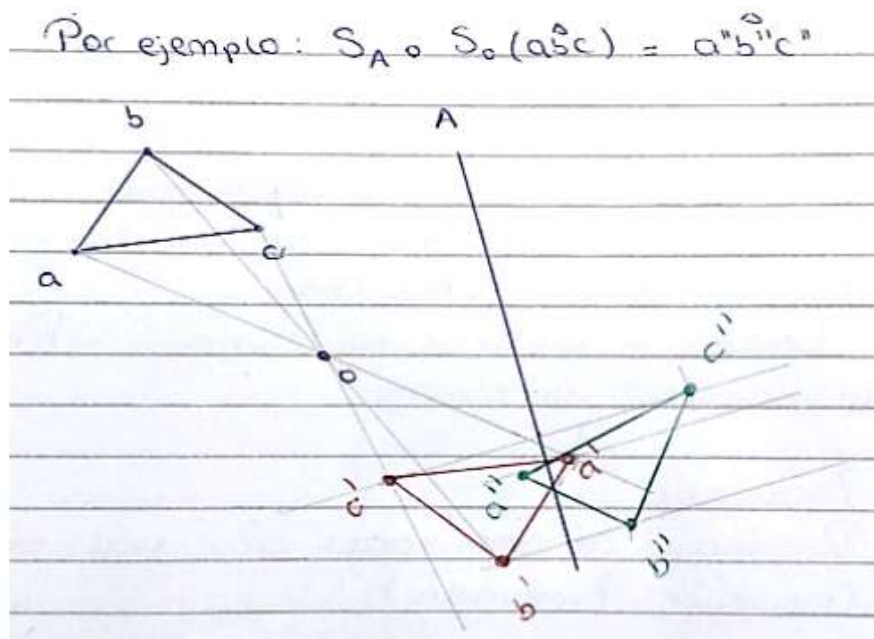 Por ejemplo: S_A o S_o (abc) = a"b"c"
b
A
a
c
o
c"
a'
a"
c'
b"
b'